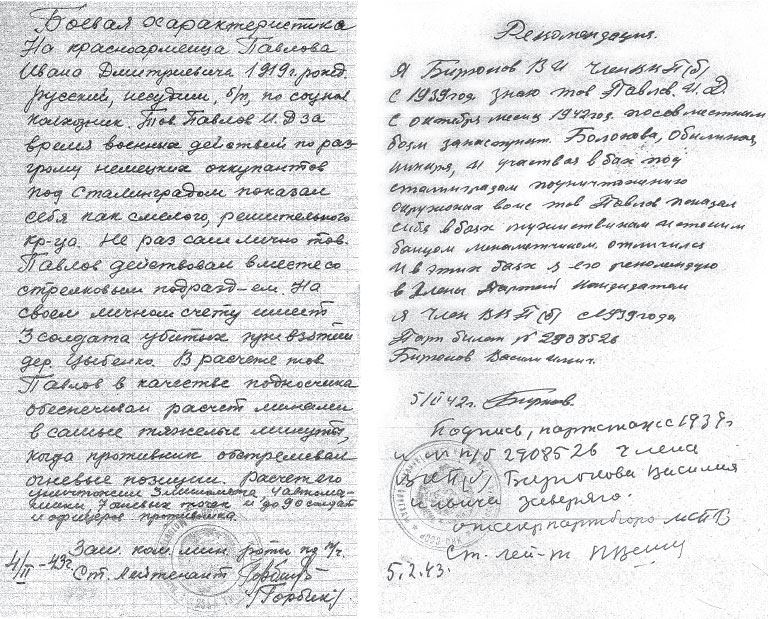 Боевая характеристика
На красноармейца Павлова
Ивана Дмитриевича 1919г. рожд.
русский, несудим, б/п, по соцпол
колхозник. Тов Павлов И.Д за
время военных действий по раз-
грому немецких оккупантов
под Сталинградом показал
себя как смелого, решительного
кр-ца. Не раз сам лично тов.
Павлов действовал вместе со
стрелковым подразд-ем. На
своем личном счету имеет
3 солдата убитых при взятии
дер. Цыбенко. В расчете тов
Павлов в качестве подносчика
обеспечивал расчет минами
в самые тяжелые минуты,
когда противник обстреливал
огневые позиции. Расчет его
уничтожил 3 миномета, 4 автома-
шины 7 огневых точек и до 90 солдат
и офицеров противника.
4/II-43г.
Зам. ком. мин. роты по п/ч.
Ст. Лейтенант
/Горбик/
Рекомендация.
Я Бирюков В И член ВКП(б)
с 1939 год. знаю тов Павлов. И. Д.
с октября месяц 1942 год. по совместным
боям
и участвуя в боях под
сталинградам по уничтожению
окружоная войс тов Павлов показал
себя в боях мужествиным и стойким
бойцом минометчиком. отличился
и в этих боях я его рекомендую
в Члены Партий Кандидатом
я Член ВКП(б) с 1939 года
Парт билет № 2908526
Бирюков Васили
5/II 42г.
Подпись, партстаж с 1939г
и № п/б 2908526 члена
ВКП(б) Бирюкова Василия
заверяю.
отсекр партбюро МСПВ
Ст. лей-т
5.2.43.